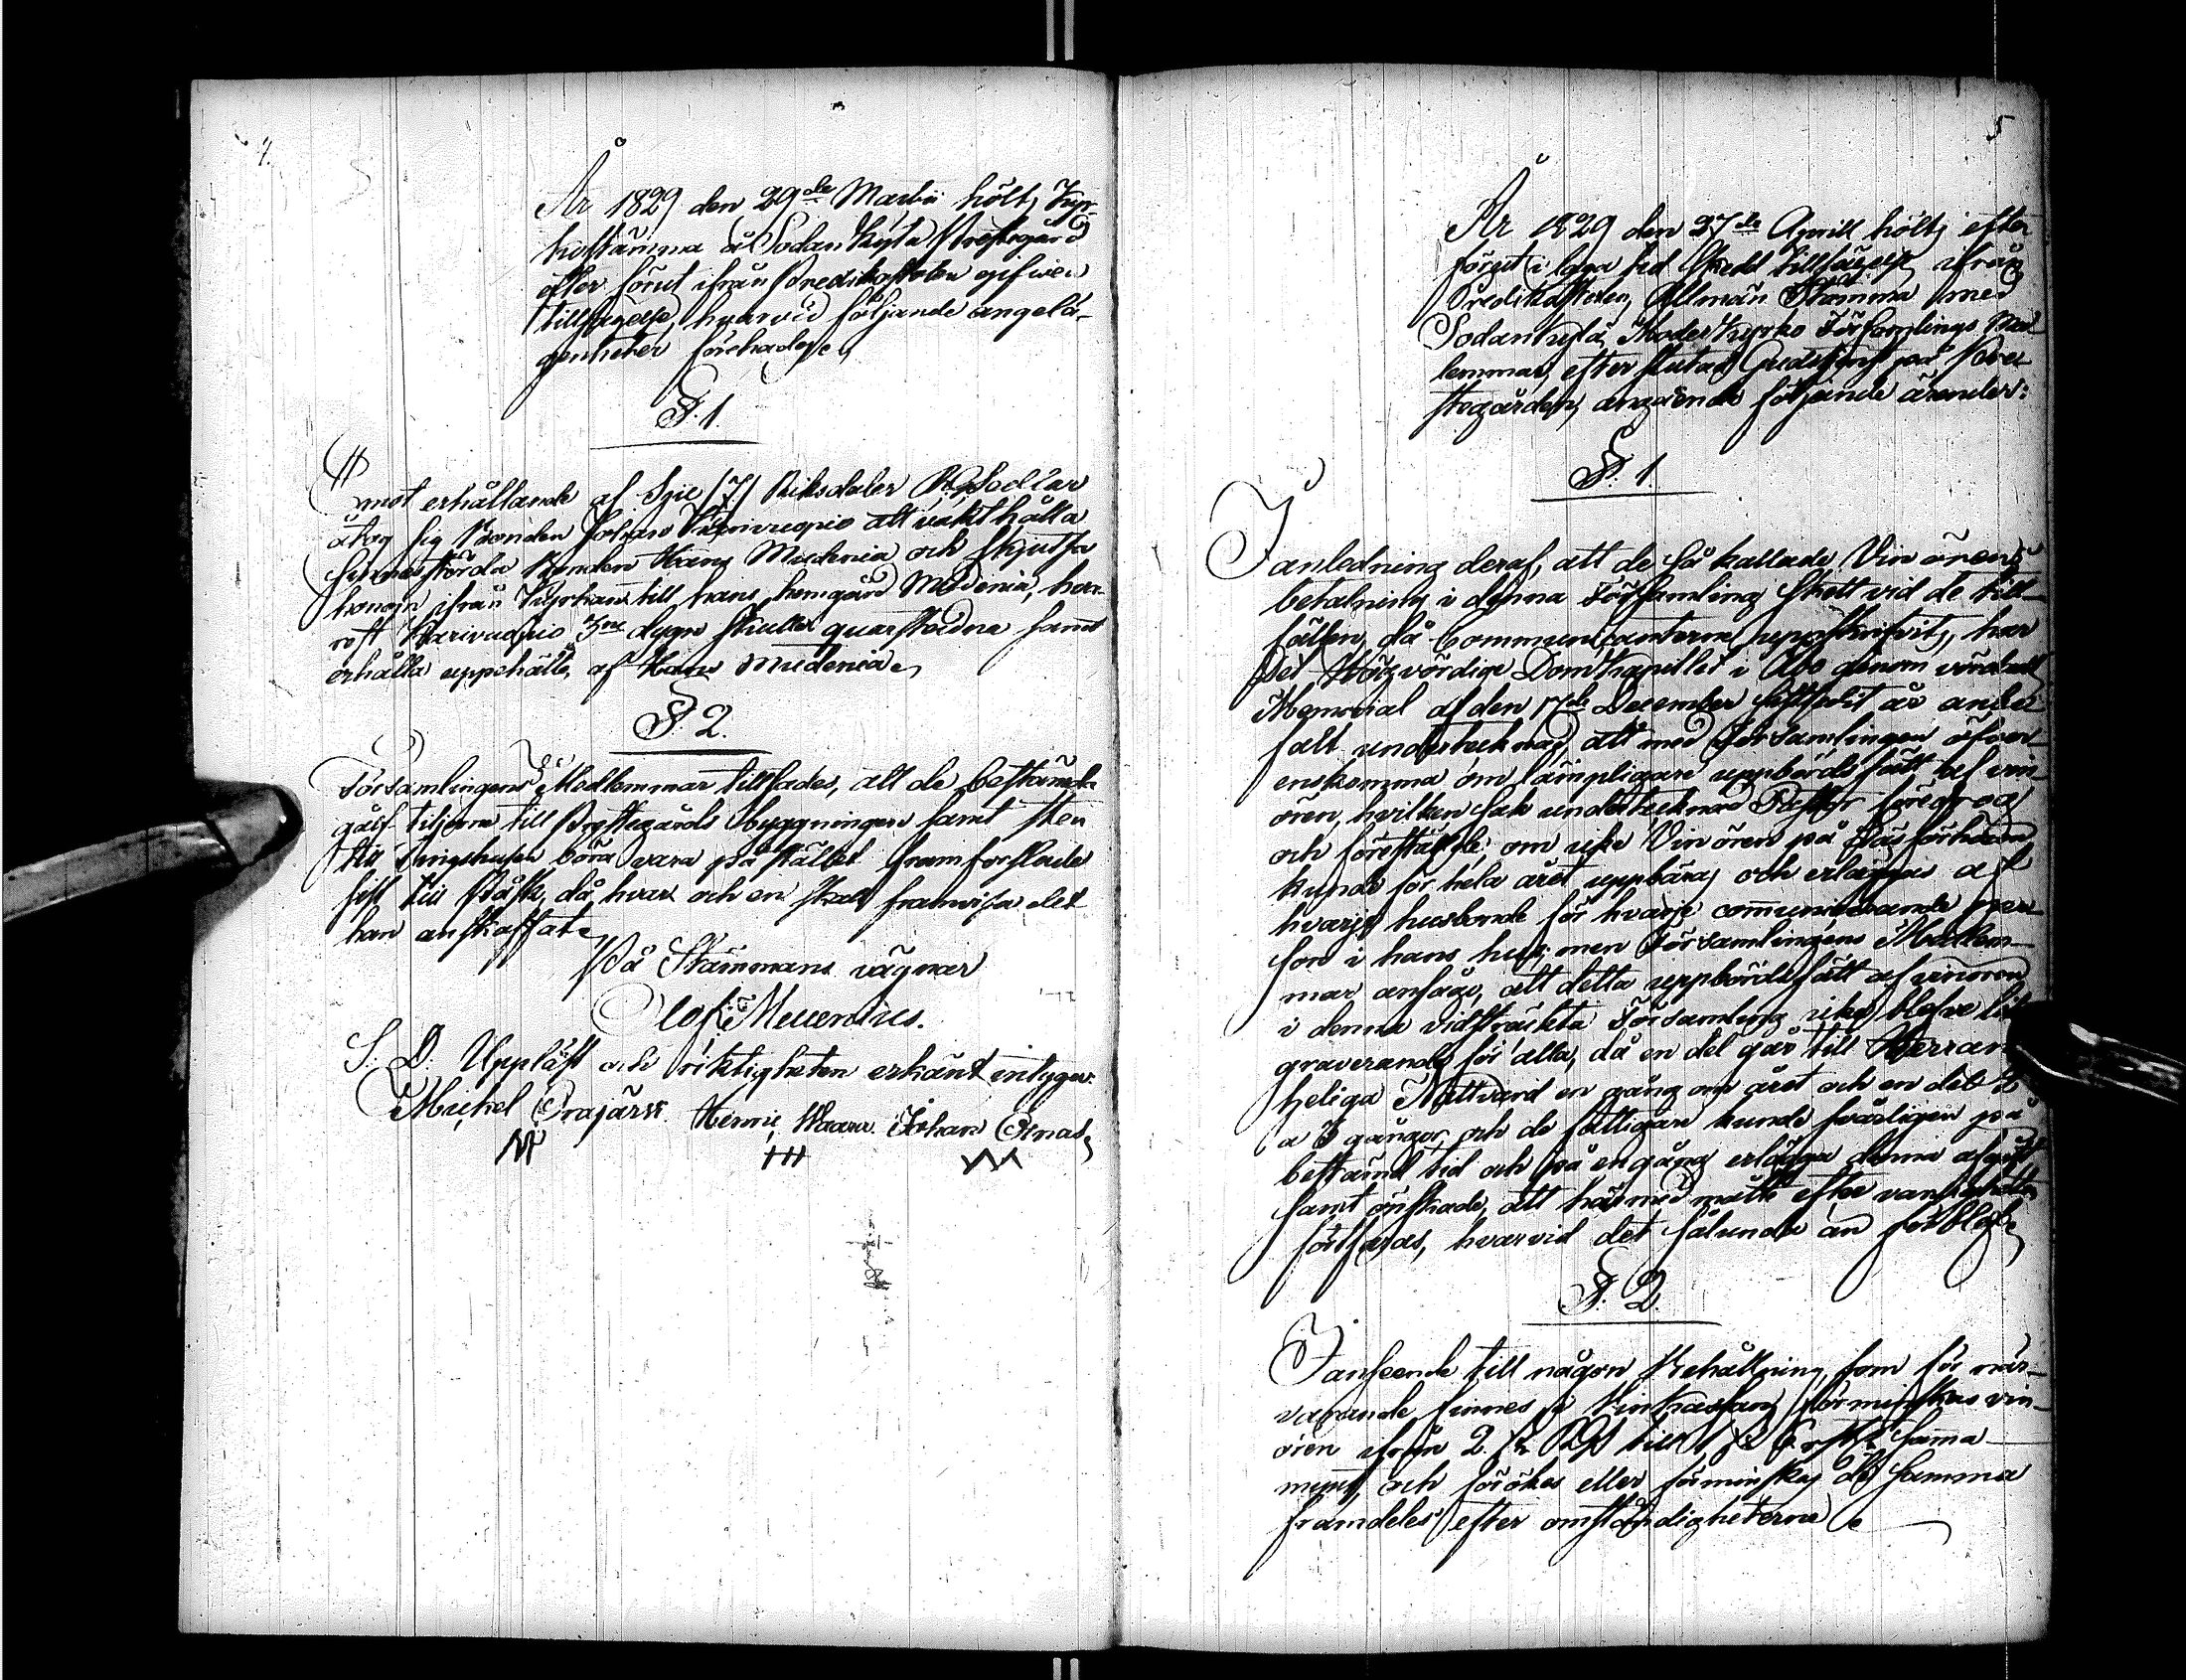 4.
År 1829 den 29de Martii hölts Kyr-
kostämma å Sodankylä Prestegård
efter förut ifrån Predikostolen gifwen
tillsägelse, hvarvid följande angelä-
genheter förehades.
§. 1.
mot erhållande af Sju /7/ Riksdaler Rgs Sedlar
åtog sig Bonden Johan att vakthålla
Bonden Hans Mudenia och skjutsa
honom ifrån Kyrkan till hans hemgård Mudenia, hva-
rest 3ne dygn skulle quarstadna samt
erhålla uppehälle af Hans Mudenia.
§. 2.
Församlingens Medlemmar tillsades, att de bestämde
golf tiljorna till Prestegårds byggningen samt sten
till böra vara på stället framforslade
sist till Påsk, då hvar och en skall framvisa det
han anskaffat.
På Stämmans vägnar
Olof Mellenius.
S. D. Uppläst och riktigheten erkänt intyga:
Michel Orajärvi Henric Waara Johan
5
År 1829 den 27de Aprill hölts efter
förut i laga tid skedd tillsägelse ifrån
Predikstolen, Allmän Stämma med
Sodankylä Moderkyrko Församlings Med-
lemmar, efter slutad Gudstjenst på Pre-
stegården, angående följande ärender:
§. 1.
I anledning deraf, att de så kallade Vin örens
betalning i denna Församling skett vid de till-
fällen, då Communicanterne uppskrifvits, har
Det Högvördige Domkapitlet i Åbo genom vördadt
Memorial af den 17de December sistledit år anbe-
falt undertecknad att med Församlingen öfver-
enskomma om lämpligare uppbörds sätt af vin
ören, hvilken sak undertecknad Pastor föredrog
och föreställde, om icke Vin ören på
kunde för hela året uppbäras och erläggas af
hvarje husbonde för hvarje communicerande per-
son i hans hus; men Församlingens Medlem-
mar ansågo, att detta uppbördssätt af vinören
i denna vidsträckta Församling icke blefve lika
graverande för alla, då en del går till Herrans
heliga Nattvard en gång om året och en del 2
a 3 gånger, och de fattigare kunde svårligen på
bestämd tid och på en gång erlägga denna afgift
samt önskade, att härmed måtte efter vanligheten
förfaras, hvarvid det sålunda än förblef.
§. 2.
I anseende till någon Behållning, som för när-
varande finnes i Vinkassan, förminskas vin-
ören ifrån 2 Rgs till 1 samma
mynt, och förökes eller förminskas de samma
framdeles efter omständigheterne